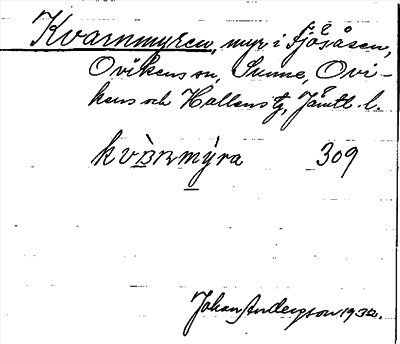 Kvarnmyren, myr i Sjösåsen,
Ovikens sn, Sunne, Ovi-
kens och Hallens tg, Jämtl. l.
kvàʀɴmy̲ra 309
Johan Anderson